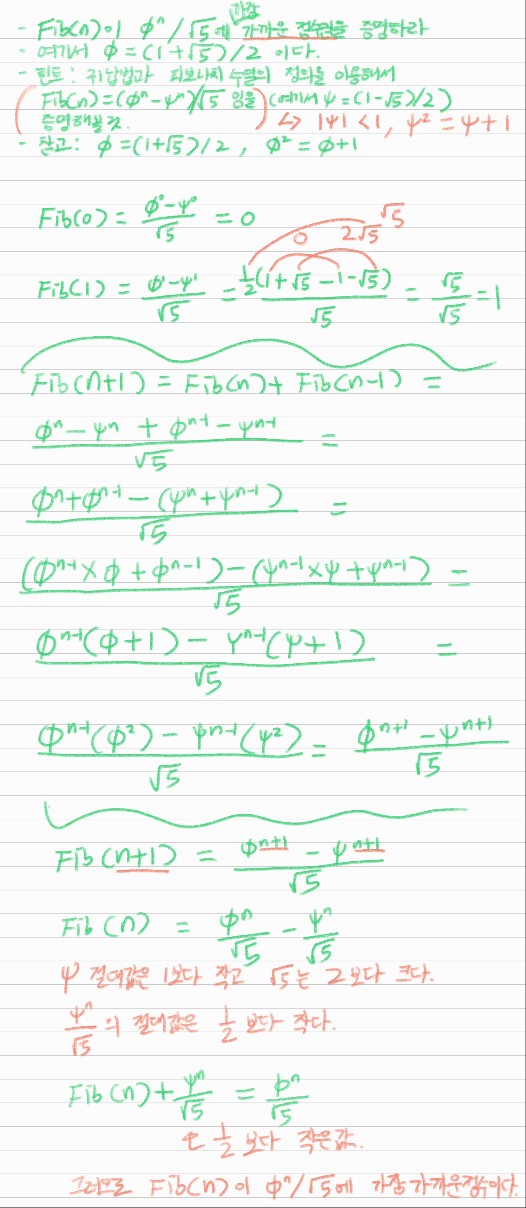 가장
- Fib(n)이 φⁿ/√5에 가까운 정수임을 증명하라
- 여기서 φ = (1+√5)/2 이다.
- 힌트: 귀납법과 피보나치 수열의 정의를 이용해서
Fib(n) = (φⁿ-ψⁿ)/√5 임을 (여기서 ψ = (1-√5)/2)
증명해볼것. ↳ |ψ| < 1, ψ² = ψ+1
- 참고: φ = (1+√5)/2 , φ² = φ+1
Fib(0) = (φ⁰-ψ⁰)/√5 = 0
0 2√5 √5
Fib(1) = (φ¹-ψ¹)/√5 = ½(1+√5-1-√5)/√5 = √5/√5 = 1
Fib(n+1) = Fib(n) + Fib(n-1) =
(φⁿ - ψⁿ + φⁿ⁻¹ - ψⁿ⁻¹)/√5 =
(φⁿ+φⁿ⁻¹ - (ψⁿ+ψⁿ⁻¹))/√5 =
((φⁿ⁻¹×φ + φⁿ⁻¹) - (ψⁿ⁻¹×ψ + ψⁿ⁻¹))/√5 =
(φⁿ⁻¹(φ+1) - ψⁿ⁻¹(ψ+1))/√5 =
(φⁿ⁻¹(φ²) - ψⁿ⁻¹(ψ²))/√5 = (φⁿ⁺¹ - ψⁿ⁺¹)/√5
Fib(n+1) = (φⁿ⁺¹ - ψⁿ⁺¹)/√5
Fib(n) = φⁿ/√5 - ψⁿ/√5
ψ 절대값은 1보다 작고 √5는 2보다 크다.
ψⁿ/√5 의 절대값은 ½ 보다 작다.
Fib(n) + ψⁿ/√5 = φⁿ/√5
↑ ½ 보다 작은값.
그러므로 Fib(n)이 φⁿ/√5에 가장 가까운 정수이다.